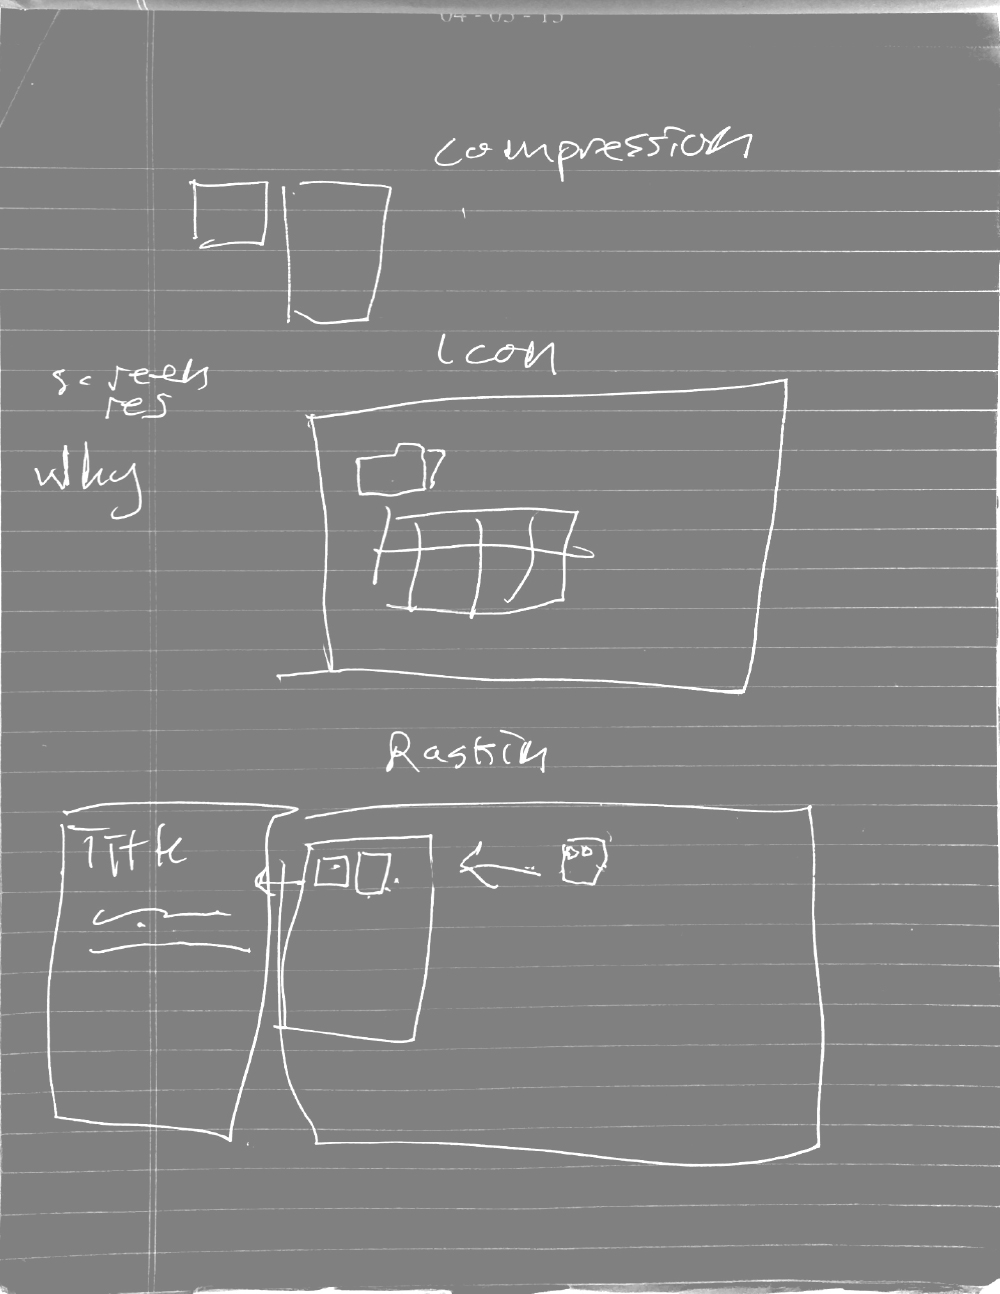 04-05-15
compression
Icon
screen
res
why
Raskin
Title